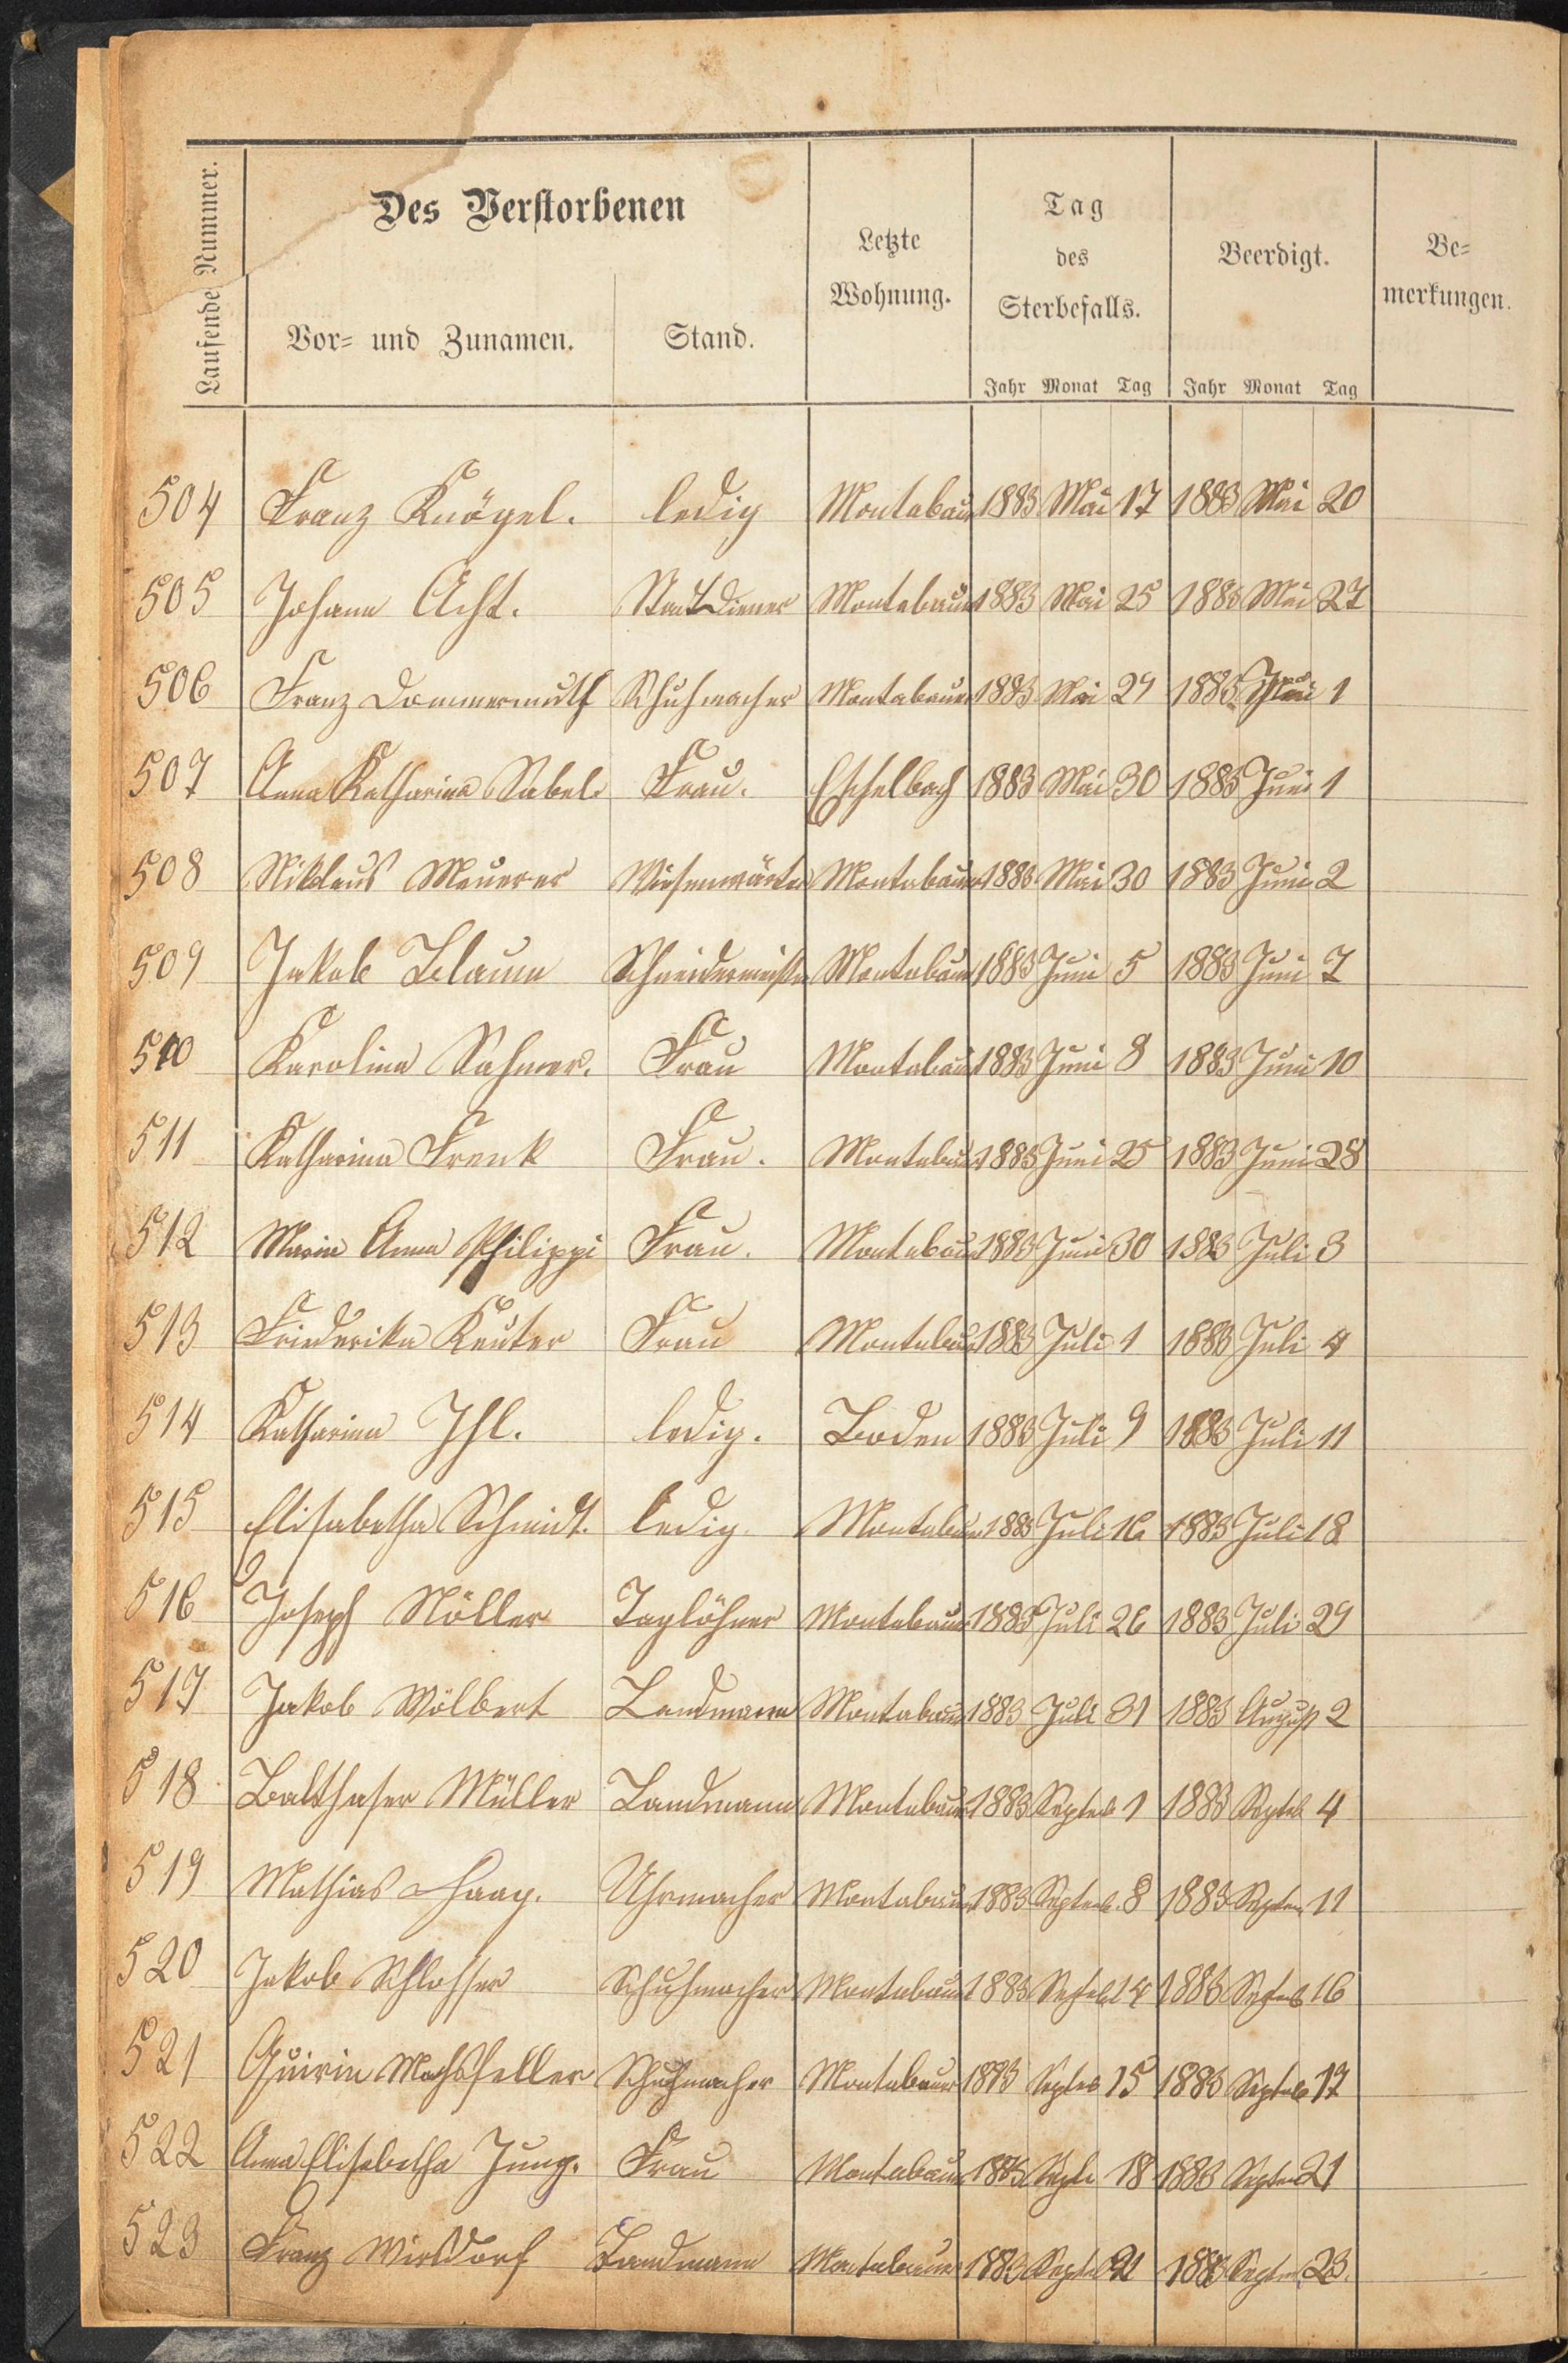 Laufende Nummer.
Des Verstorbenen
Vor= und Zunamen.
Stand.
Letzte
Wohnung.
Tag
des
Sterbefalls.
Jahr Monat Tag
Beerdigt.
Jahr Monat Tag
Be=
merkungen.
504 Franz Knögel. ledig Montabaur 1883 Mai 17 1883 Mai 20
505 Johann Acht. Stadtdiener Montabaur 1883 Mai 25 1883 Mai 27
506 Franz Dommermuth Schuhmacher Montabaur 1883 Mai 29 1883 Juni 1
507 Anna Katharina Sabel. Frau. Eschelbach 1883 Mai 30 1883 Juni 1
508 Niklaus Meuerer Wiesenwärter Montabaur 1883 Mai 30 1883 Juni 2
509 Jakob Blaum Schneidermeister Montabaur 1883 Juni 5 1883 Juni 7
510 Karolina Sahmer. Frau Montabaur 1883 Juni 8 1883 Juni 10
511 Katharina Frenk Frau. Montabaur 1883 Juni 25 1883 Juni 28
512 Maria Anna Philippi Frau. Montabaur 1883 Juni 30 1883 Juli 3
513 Friederika Reuter Frau Montabaur 1883 Juli 1 1883 Juli 4
514 Katharina Ihl. ledig. Boden 1883 Juli 9 1883 Juli 11
515 Elisabetha Schmidt. ledig. Montabaur 1883 Juli 16 1883 Juli 18
516 Joseph Nöller Taglöhner Montabaur 1883 Juli 26 1883 Juli 29
517 Jakob Wölbert Landmann Montabaur 1883 Juli 31 1883 August 2
518 Balthaser Müller Landmann Montabaur 1883 Septeb 1 1883 Septeb 4
519 Mathias Haag. Uhrmacher Montabaur 1883 Septemb. 8 1883 Septem 11
520 Jakob Schlosser Schuhmacher Montabaur 1883 Septeb 14 1883 Septeb 16
521 Quirin Machsheller Schuhmacher Montabaur 1883 Septeb 15 1883 Septeb 17
522 Anna Elisabetha Jung. Frau Montabaur 1883 Septe 18 1883 Septem 21
523 Franz Wirsdorf Landmann Montabaur 1883 Septe 21 1883 Septem 23.